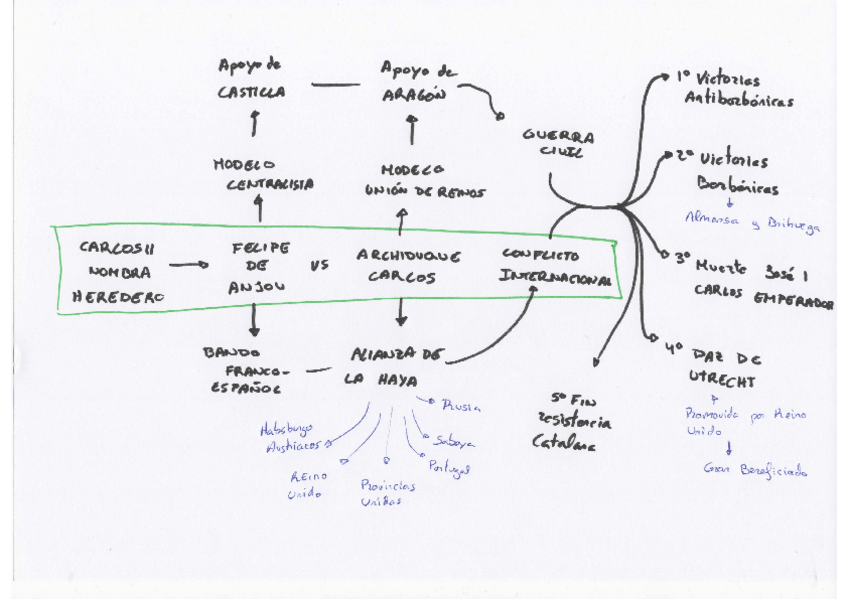 Apoyo de
CASTILLA
Apoyo de
ARAGÓN
GUERRA
CIVIL
1º Victorias
Antiborbónicas
MODELO
CENTRALISTA
MODELO
UNIÓN DE REINOS
2º Victorias
Borbónicas
Almansa y Brihuega
CARLOS II
NOMBRA
HEREDERO
FELIPE
DE
ANJOU
VS
ARCHIDUQUE
CARLOS
CONFLICTO
INTERNACIONAL
3º Muerte José I
CARLOS EMPERADOR
BANDO
FRANCO-
ESPAÑOL
ALIANZA DE
LA HAYA
4º PAZ DE
UTRECHT
Promovida por Reino
Unido
Gran Beneficiado
5º FIN
resistencia
Catalana
Prusia
Saboya
Portugal
Habsburgo
Austriacos
REINO
Unido
Provincias
Unidas